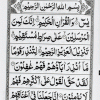 بِسْمِ اللهِ الرَّحْمٰنِ الرَّحِيْمِ
يٰسٓ وَالْقُرْاٰنِ الْحَكِيْمِ اِنَّكَ لَمِنَ
الْمُرْسَلِيْنَ عَلٰى صِرَاطٍ مُّسْتَقِيْمٍ
تَنْزِيْلَ الْعَزِيْزِ الرَّحِيْمِ لِتُنْذِرَ قَوْمًا
مَّآ اُنْذِرَ اٰبَآؤُهُمْ فَهُمْ غٰفِلُوْنَ
لَقَدْ حَقَّ الْقَوْلُ عَلٰٓى اَكْثَرِهِمْ فَهُمْ